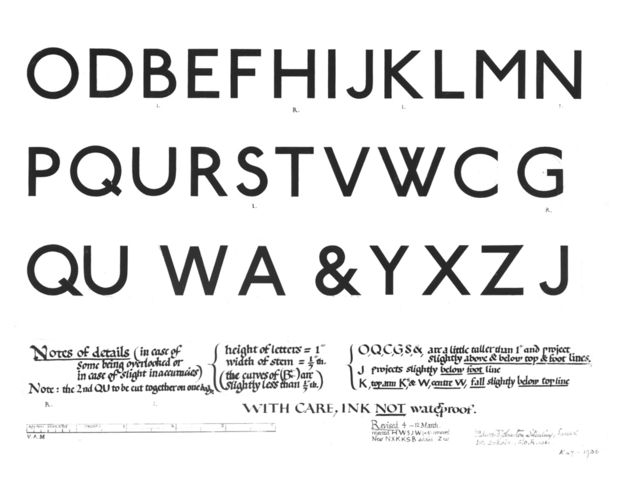 ODBEFHIJKLMN
PQURSTVWCG
QU WA &YXZJ
Notes of details (in case of
some being overlooked or
in case of slight inaccuracies)
Note: the 2nd QU to be cut together on one body.
height of letters = 1"
width of stem = 1/7 in.
(the curves of (B etc.) are
slightly less than 1/7 in.)
O,Q,C,G,S,&, are a little taller than 1" and project
slightly above & below top & foot lines.
J projects slightly below foot line
K, top arm & W, centre W, fall slightly below top line
WITH CARE, INK NOT waterproof.
Revised 4–12 March
V.A.M